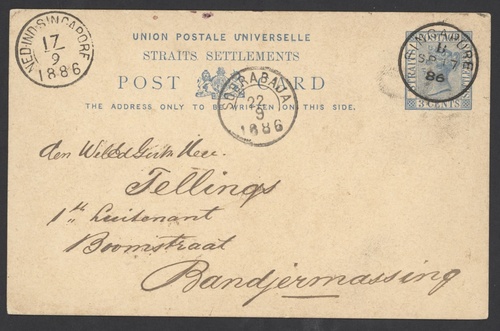 NED.IND.SINGAPORE
17
9
1886
UNION POSTALE UNIVERSELLE
STRAITS SETTLEMENTS
POST CARD
THE ADDRESS ONLY TO BE WRITTEN ON THIS SIDE.
SINGAPORE
B
SP 7
86
3 CENTS
SOERABAJA
22
9
1886
den Heer
Tellings
1st Luitenant
Boomstraat
Bandjermassing